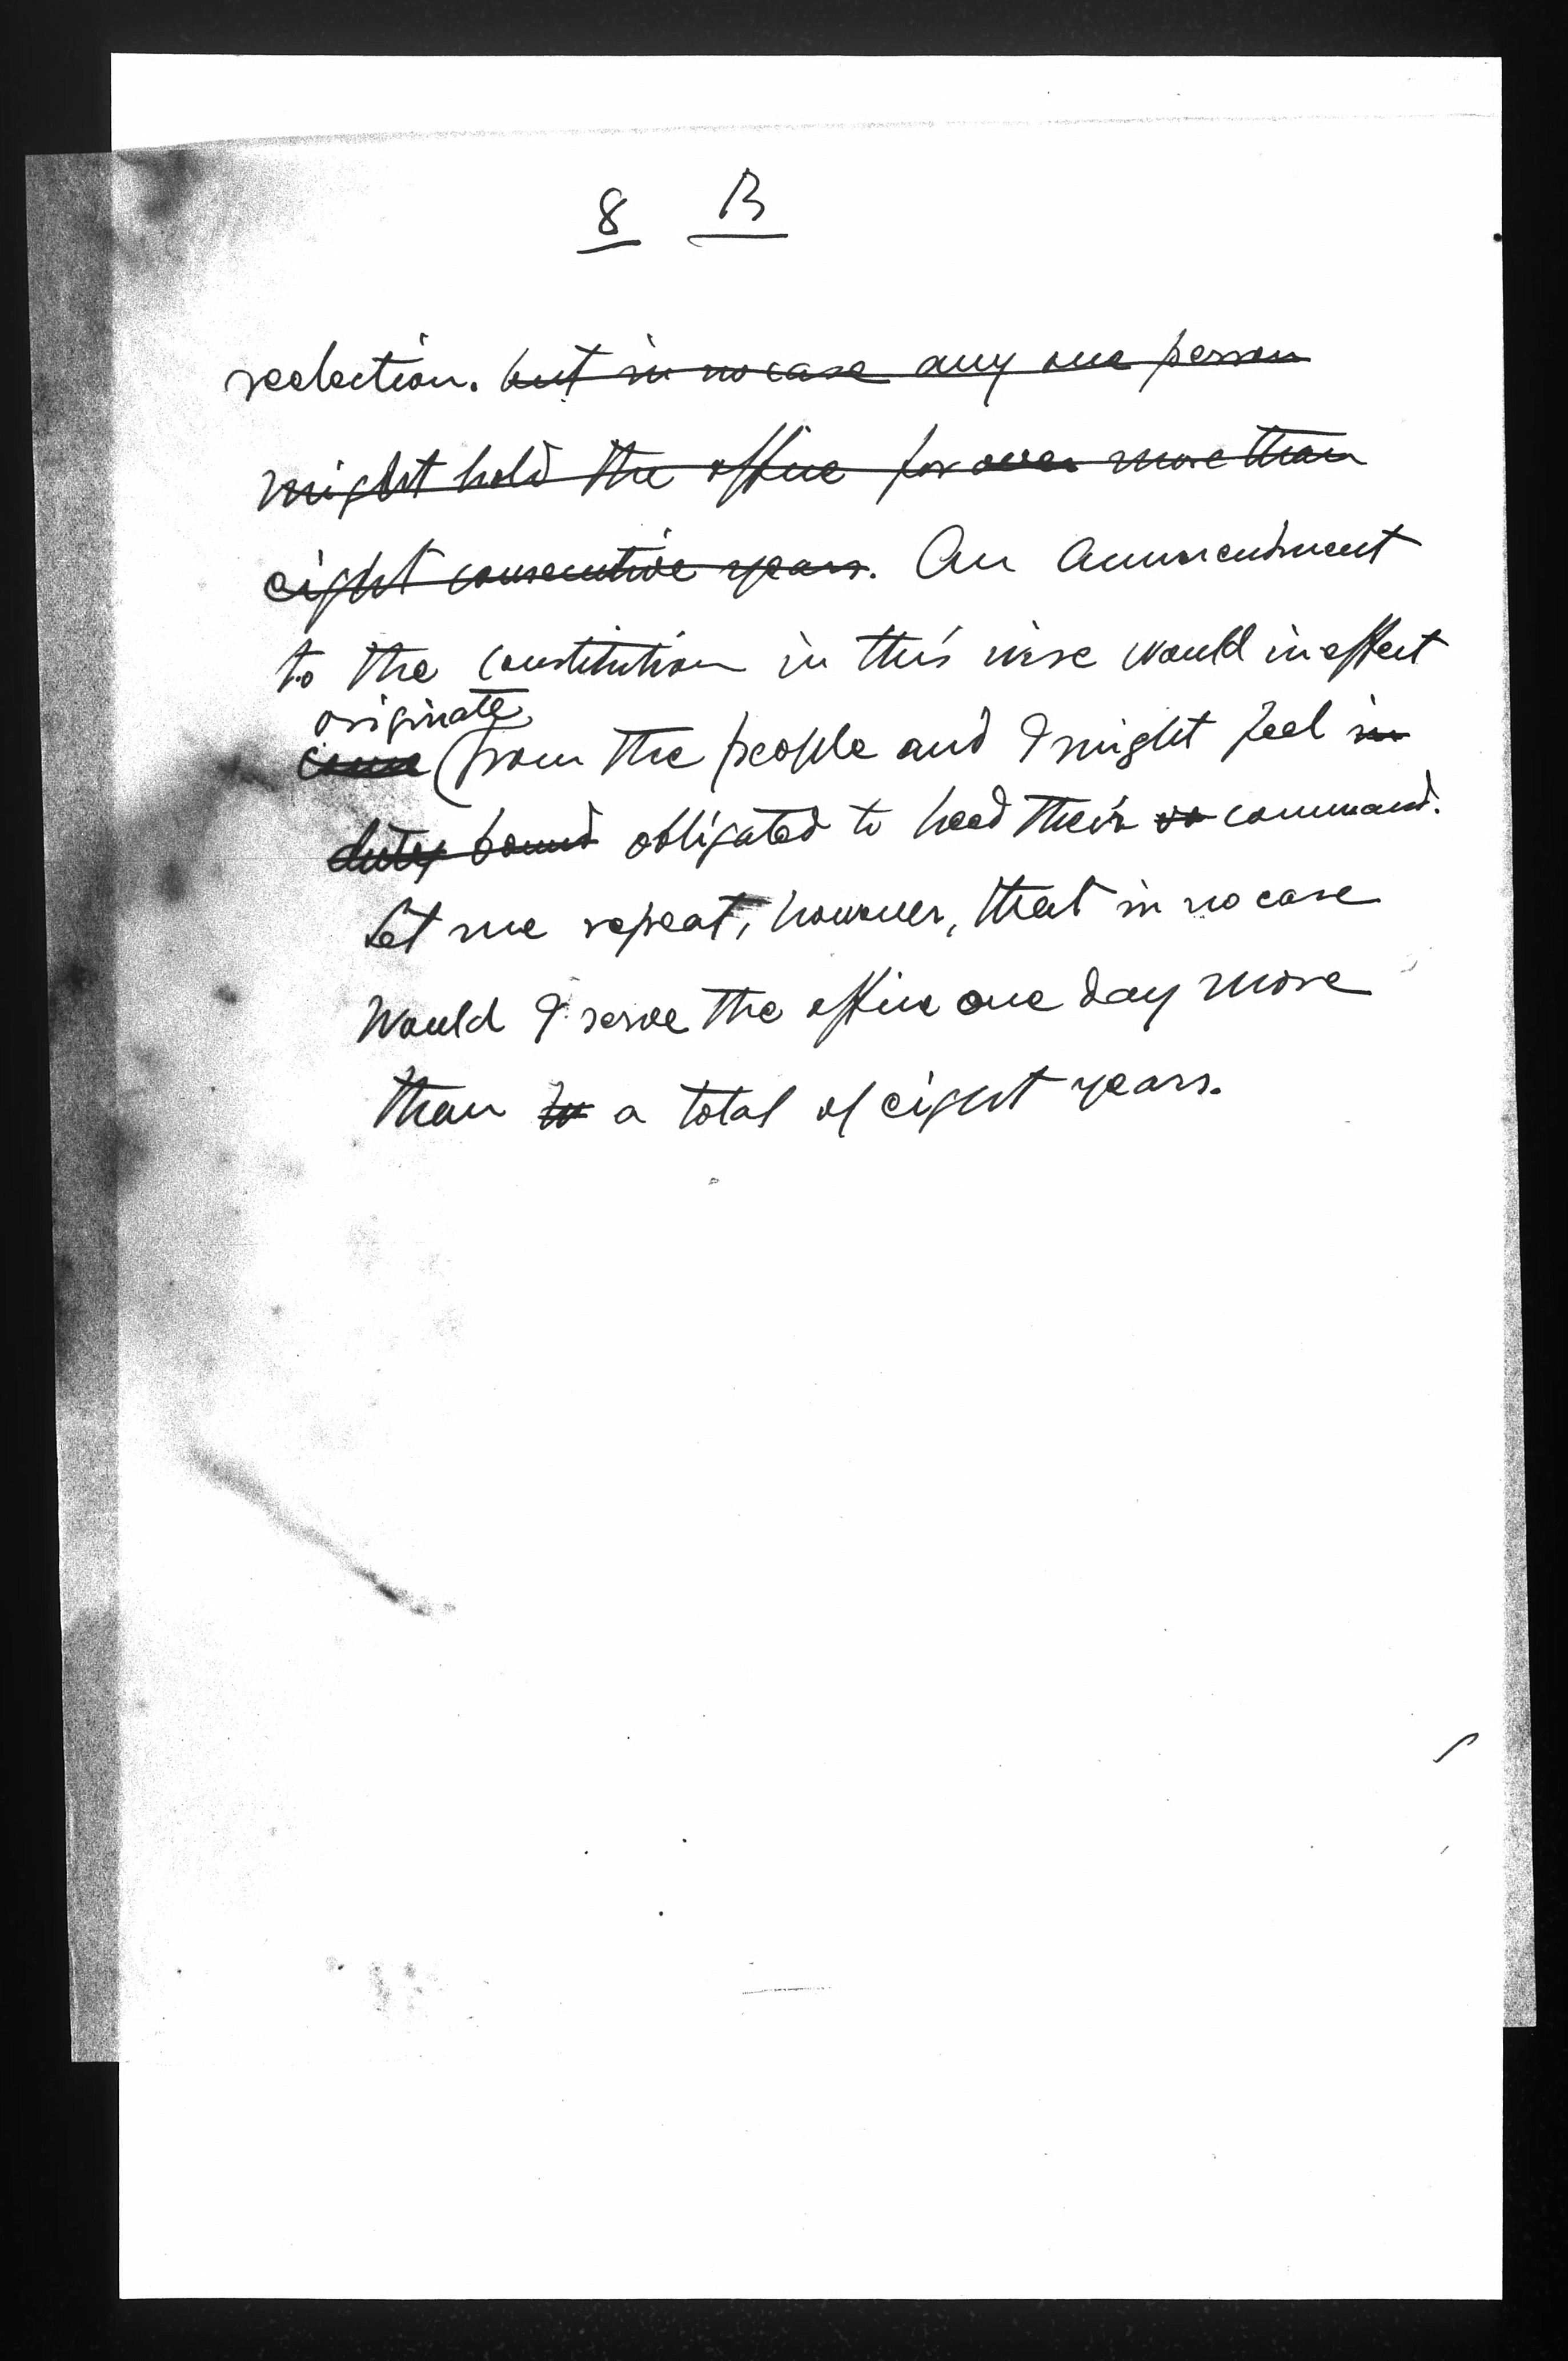 8 B
reelection. but in no case any one person
might hold the office for over more than
eight consecutive years. An Ammendment
to the constitution in this wise would in effect
originate
come from the people and I might feel in
duty bound obligated to heed their command.
Let me repeat, however, that in no case
Would I serve the office one day more
than to a total of eight years.